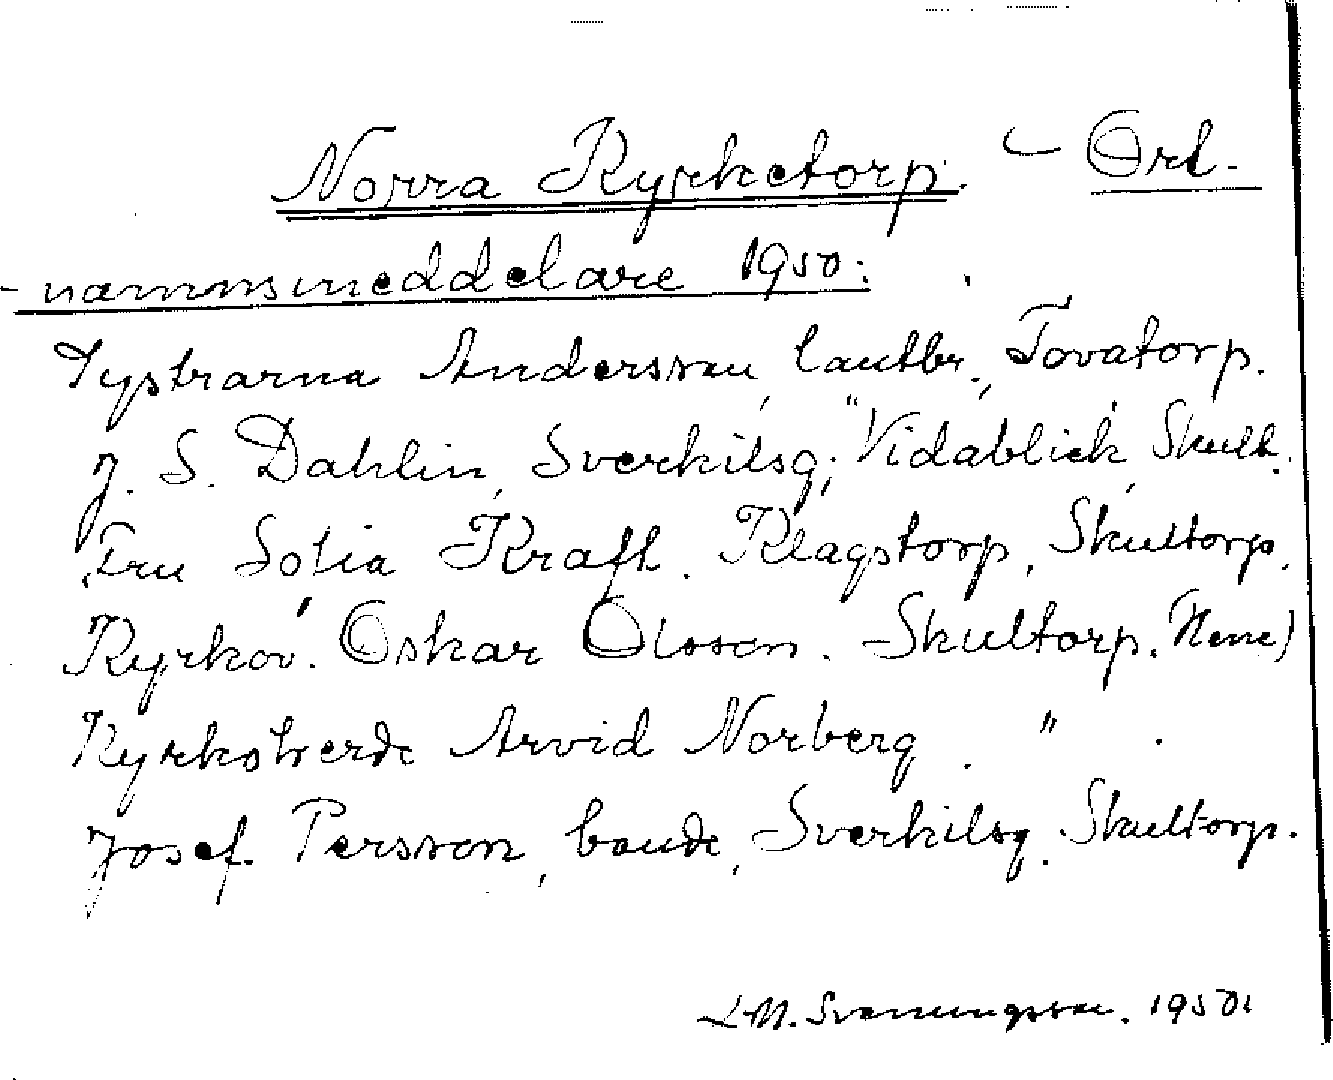 Norra Kyrketorp. - Ort-
- namnsmeddelare 1950:
Systrarna Andersson, lantbr., Tovatorp.
J. S. Dahlin, Sverkilsg; "Vidablick, Skult.
Fru Sofia Kraft. Klagstorp, Skultorp.
Kyrkov. Oskar Olsson. Skultorp. Nene)
Kyrkoherde Arvid Norberg. " .
Josef Persson, bonde, Sverkilsg. Skultorp.
L.M. Svenungsson. 1950.